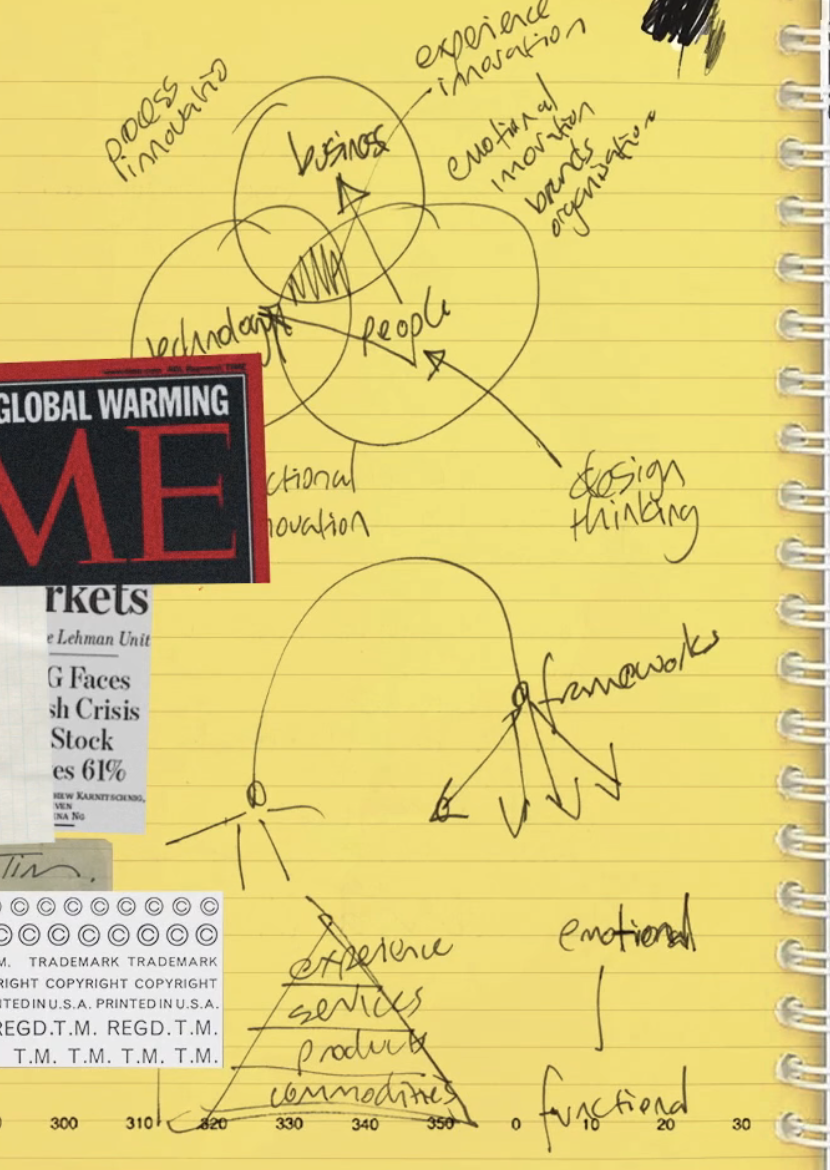 experience
innovation
process
innovatio
emotional
inovation
brands
organisation
business
technology
people
GLOBAL WARMING
ME
ctional
novation
design
thinking
rkets
e Lehman Unit
G Faces
sh Crisis
Stock
es 61%
NA NG
frameworks
Tim.
© © © © © ©
© © © © © ©
M. TRADEMARK TRADEMARK
RIGHT COPYRIGHT COPYRIGHT
TED IN U.S.A. PRINTED IN U.S.A.
REGD.T.M. REGD.T.M.
T.M. T.M. T.M. T.M.
experience
services
products
commodities
emotional
functional
300 310 320 330 340 350 0 10 20 30